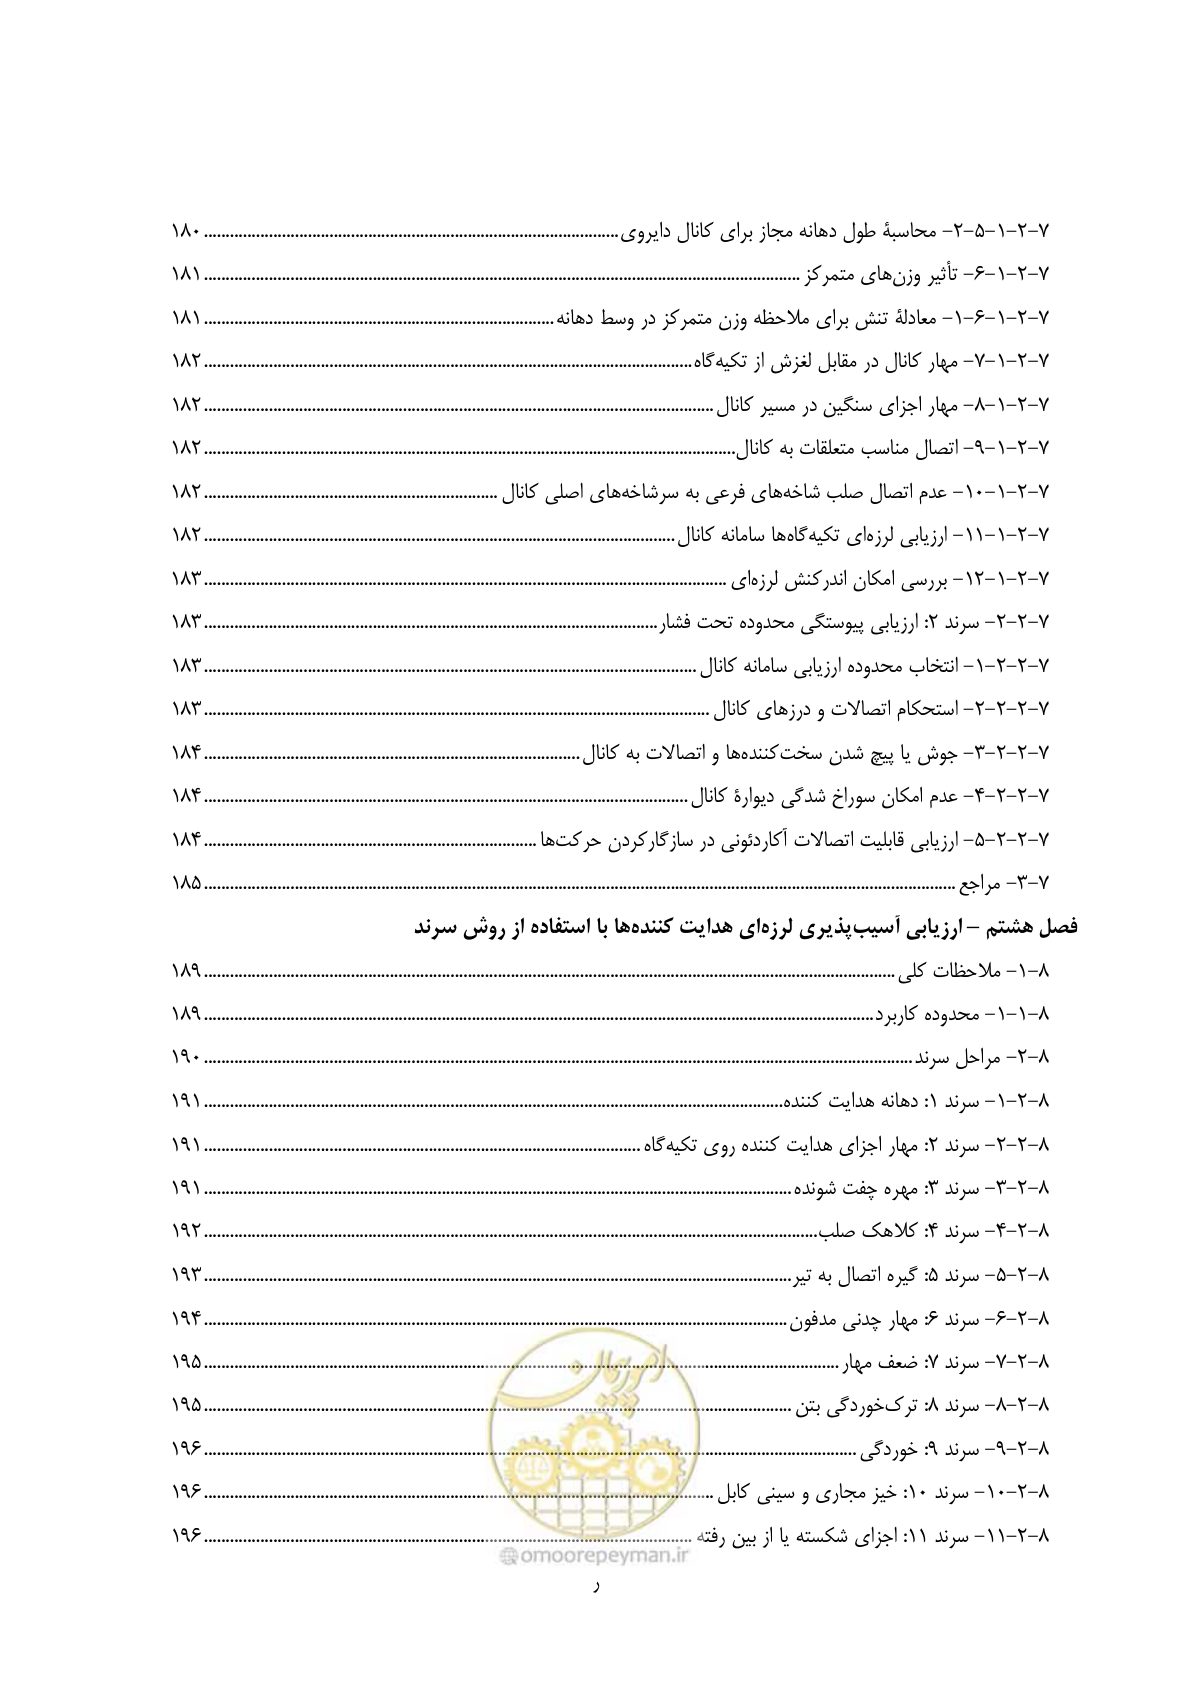 ۷-۲-۱-۵-۲- محاسبۀ طول دهانه مجاز برای کانال دایروی ........ ۱۸۰
۷-۲-۱-۶- تأثیر وزن‌های متمرکز ........ ۱۸۱
۷-۲-۱-۶-۱- معادلۀ تنش برای ملاحظه وزن متمرکز در وسط دهانه ........ ۱۸۱
۷-۲-۱-۷- مهار کانال در مقابل لغزش از تکیه‌گاه ........ ۱۸۲
۷-۲-۱-۸- مهار اجزای سنگین در مسیر کانال ........ ۱۸۲
۷-۲-۱-۹- اتصال مناسب متعلقات به کانال ........ ۱۸۲
۷-۲-۱-۱۰- عدم اتصال صلب شاخه‌های فرعی به سرشاخه‌های اصلی کانال ........ ۱۸۲
۷-۲-۱-۱۱- ارزیابی لرزه‌ای تکیه‌گاه‌ها سامانه کانال ........ ۱۸۲
۷-۲-۱-۱۲- بررسی امکان اندرکنش لرزه‌ای ........ ۱۸۳
۷-۲-۲- سرند ۲: ارزیابی پیوستگی محدوده تحت فشار ........ ۱۸۳
۷-۲-۲-۱- انتخاب محدوده ارزیابی سامانه کانال ........ ۱۸۳
۷-۲-۲-۲- استحکام اتصالات و درزهای کانال ........ ۱۸۳
۷-۲-۲-۳- جوش یا پیچ شدن سخت‌کننده‌ها و اتصالات به کانال ........ ۱۸۴
۷-۲-۲-۴- عدم امکان سوراخ شدگی دیوارۀ کانال ........ ۱۸۴
۷-۲-۲-۵- ارزیابی قابلیت اتصالات آکاردئونی در سازگارکردن حرکت‌ها ........ ۱۸۴
۷-۳- مراجع ........ ۱۸۵
فصل هشتم – ارزیابی آسیب‌پذیری لرزه‌ای هدایت کننده‌ها با استفاده از روش سرند
۸-۱- ملاحظات کلی ........ ۱۸۹
۸-۱-۱- محدوده کاربرد ........ ۱۸۹
۸-۲- مراحل سرند ........ ۱۹۰
۸-۲-۱- سرند ۱: دهانه هدایت کننده ........ ۱۹۱
۸-۲-۲- سرند ۲: مهار اجزای هدایت کننده روی تکیه‌گاه ........ ۱۹۱
۸-۲-۳- سرند ۳: مهره چفت شونده ........ ۱۹۱
۸-۲-۴- سرند ۴: کلاهک صلب ........ ۱۹۲
۸-۲-۵- سرند ۵: گیره اتصال به تیر ........ ۱۹۳
۸-۲-۶- سرند ۶: مهار چدنی مدفون ........ ۱۹۴
۸-۲-۷- سرند ۷: ضعف مهار ........ ۱۹۵
۸-۲-۸- سرند ۸: ترک‌خوردگی بتن ........ ۱۹۵
۸-۲-۹- سرند ۹: خوردگی ........ ۱۹۶
۸-۲-۱۰- سرند ۱۰: خیز مجاری و سینی کابل ........ ۱۹۶
۸-۲-۱۱- سرند ۱۱: اجزای شکسته یا از بین رفته ........ ۱۹۶
امور پیمان
@omoorepeyman.ir
ر